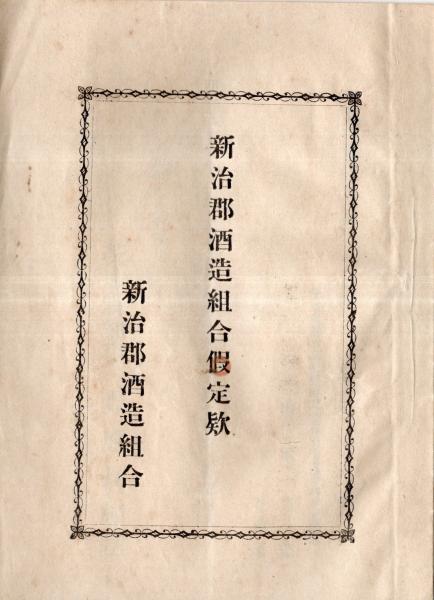 新治郡酒造組合假定欵
新治郡酒造組合